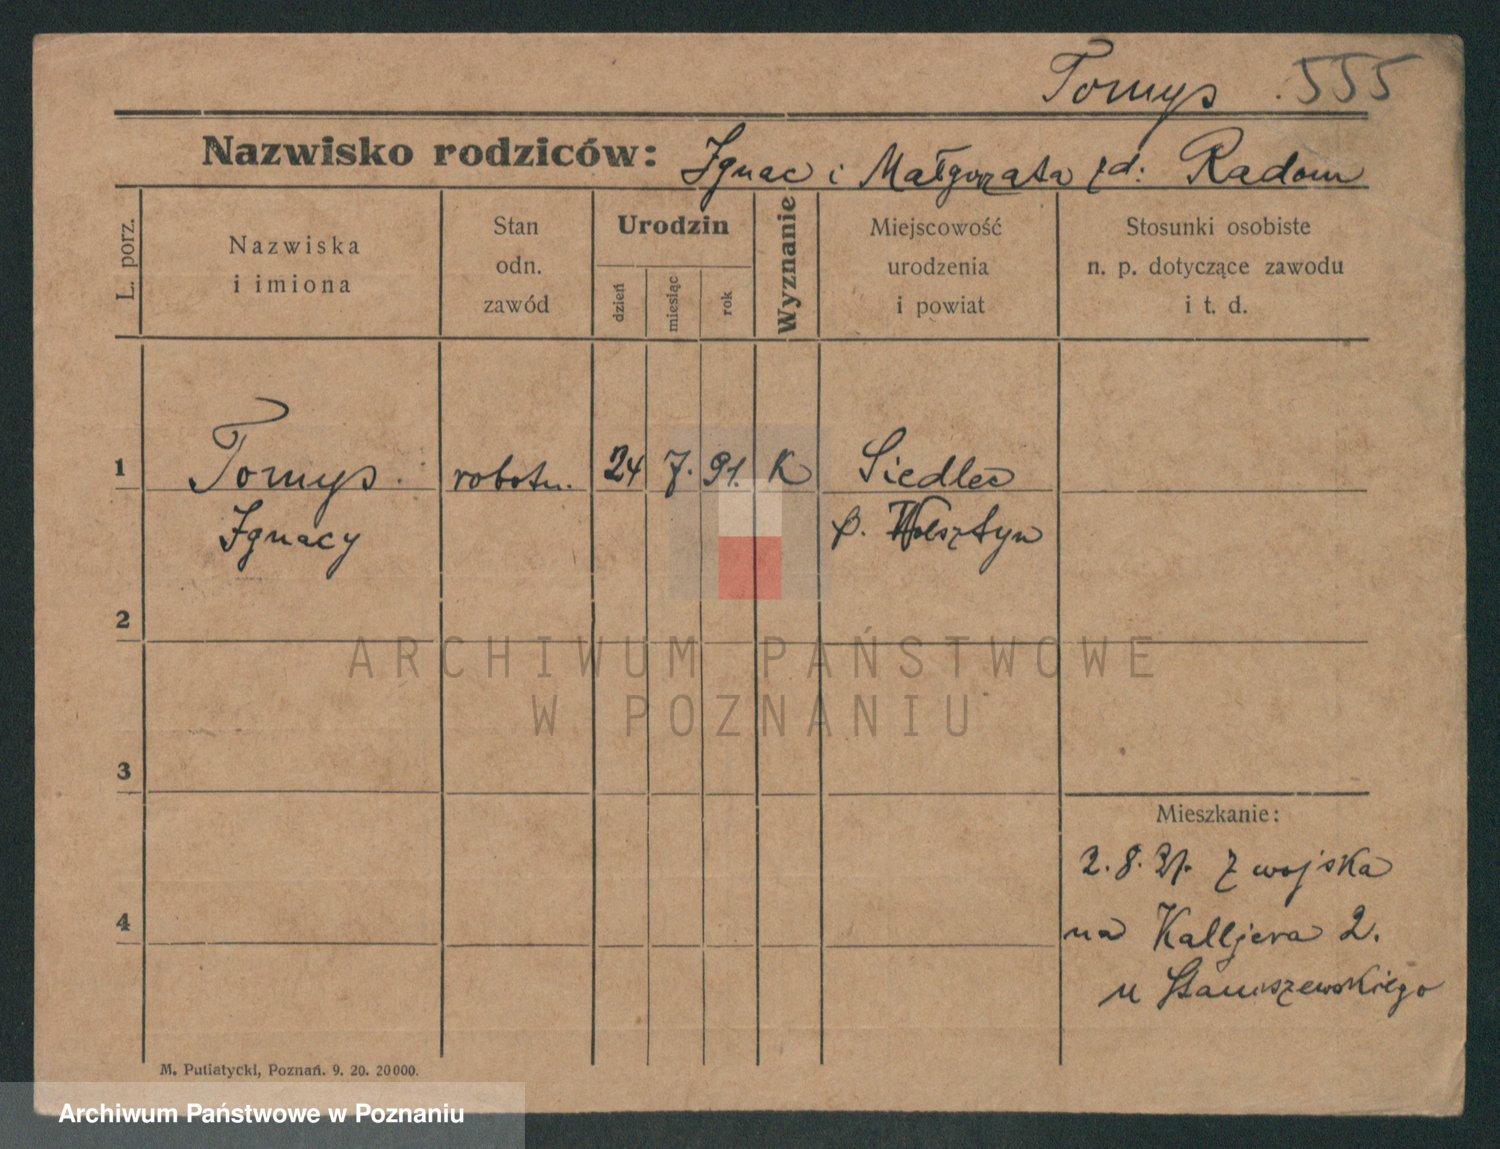 Tomys 555
Nazwisko rodziców: Ignac i Małgorzata zd: Radom
L. porz.
Nazwiska
i imiona
Stan
odn.
zawód
Urodzin
dzień
miesiąc
rok
Wyznanie
Miejscowość
urodzenia
i powiat
Stosunki osobiste
n. p. dotyczące zawodu
i t. d.
1 Tomys robotn. 24 7. 91. K Siedlec
Ignacy p. Wolsztyn
2
ARCHIWUM PAŃSTWOWE
W POZNANIU
3
Mieszkanie:
2.8.21. z wojska
4
na Kalljera 2.
u Staniszewskiego
M. Putiatycki, Poznań. 9. 20. 20000.
Archiwum Państwowe w Poznaniu